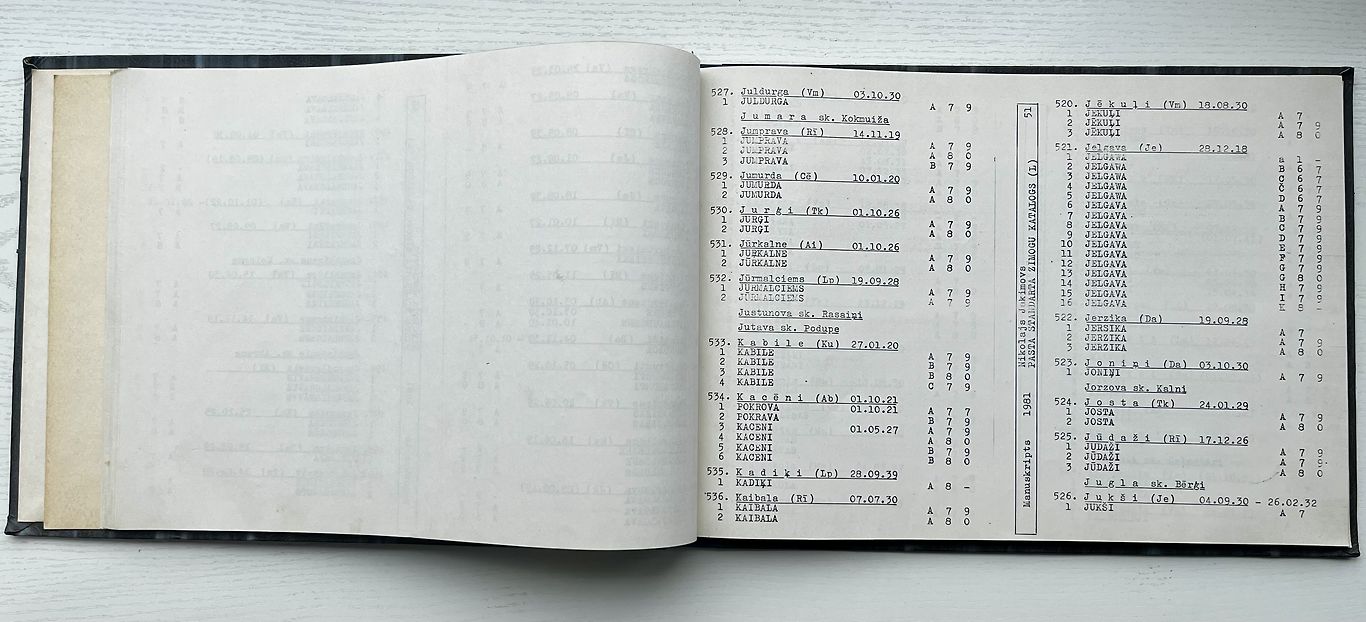 527. Juldurga (Vm) 03.10.30
1 JULDURGA A 7 9
Jumara sk. Kokmuiža
528. Jumprava (Rī) 14.11.19
1 JUMPRAVA A 7 9
2 JUMPRAVA A 8 0
3 JUMPRAVA B 7 9
529. Jumurda (Cē) 10.01.20
1 JUMURDA A 7 9
2 JUMURDA A 8 0
530. Jurģi (Tk) 01.10.26
1 JURĢI A 7 9
2 JURĢI A 8 0
531. Jūrkalne (Ai) 01.10.26
1 JŪRKALNE A 7 9
2 JŪRKALNE A 8 0
532. Jūrmalciems (Lp) 19.09.28
1 JŪRMALCIEMS A 7 9
2 JŪRMALCIEMS A 7 9
Justunova sk. Rasaiņi
Jutava sk. Podupe
533. Kabile (Ku) 27.01.20
1 KABILE A 7 9
2 KABILE B 7 9
3 KABILE B 8 0
4 KABILE C 7 9
534. Kacēni (Ab) 01.10.21
1 POKROVA 01.10.21 A 7 7
2 POKRAVA B 7 9
3 KACENI 01.05.27 A 7 9
4 KACENI A 8 0
5 KACENI B 7 9
6 KACENI B 8 0
535. Kadiķi (Lp) 28.09.39
1 KADIĶI A 8 –
536. Kaibala (Rī) 07.07.30
1 KAIBALA A 7 9
2 KAIBALA A 8 0
Manuskripts 1981 Nikolajs Jakimovs 51
PASTA STANDARTA ZĪMOGU KATALOGS (L)
520. Jēkuļi (Vm) 18.08.30
1 JĒKUĻI A 7
2 JĒKUĻI A 7 9
3 JĒKUĻI A 8 0
521. Jelgava (Je) 28.12.18
1 JELGAWA a 1 –
2 JELGAWA B 6 7
3 JELGAWA C 6 7
4 JELGAWA Č 6 7
5 JELGAWA D 6 7
6 JELGAVA A 7 9
7 JELGAVA B 7 9
8 JELGAVA C 7 9
9 JELGAVA D 7 9
10 JELGAVA E 7 9
11 JELGAVA F 7 9
12 JELGAVA G 7 9
13 JELGAVA G 8 0
14 JELGAVA H 7 9
15 JELGAVA I 7 9
16 JELGAVA K 8 –
522. Jerzika (Da) 19.09.28
1 JERSIKA A 7
2 JERZIKA A 7 9
3 JERZIKA A 8 0
523. Joniņi (Da) 03.10.30
1 JONIŅI A 7 9
Jorzova sk. Kalni
524. Josta (Tk) 24.01.29
1 JOSTA A 7 9
2 JOSTA A 8 0
525. Jūdaži (Rī) 17.12.26
1 JUDAŽI A 7 9
2 JŪDAŽI A 7 9
3 JŪDAŽI A 8 0
Jugla sk. Bērģi
526. Jukši (Je) 04.09.30 – 26.02.32
1 JUKŠI A 7